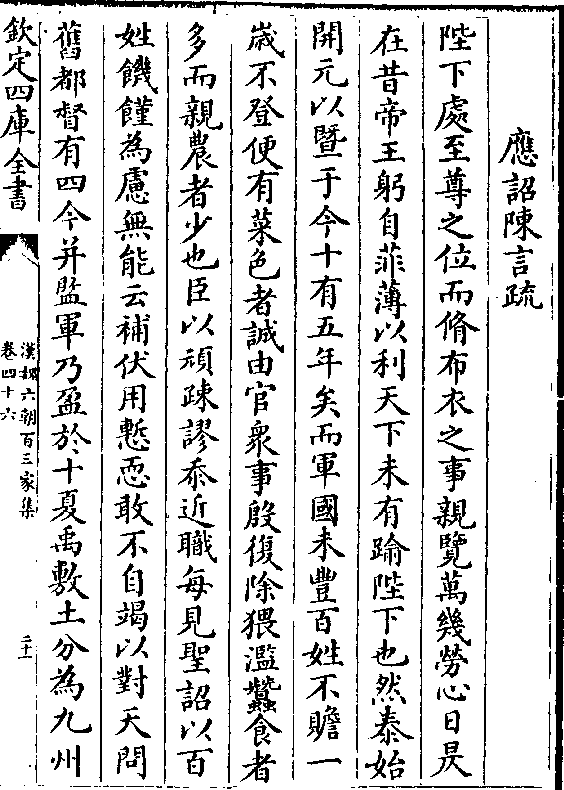 應詔陳言疏
陛下處至尊之位而脩布衣之事親覽萬幾勞心日昃
在昔帝王躬自菲薄以利天下未有踰陛下也然泰始
開元以暨于今十有五年矣而軍國未豐百姓不贍一
歲不登便有菜色者誠由官衆事殷復除猥濫蠶食者
多而親農者少也臣以頑疎謬忝近職每見聖詔以百
姓饑饉為慮無能云補伏用慙恧敢不自竭以對天問
舊都督有四今并監軍乃盈於十夏禹敷土分為九州
欽定四庫全書
漢魏六朝百三家集
卷四十六
二十一